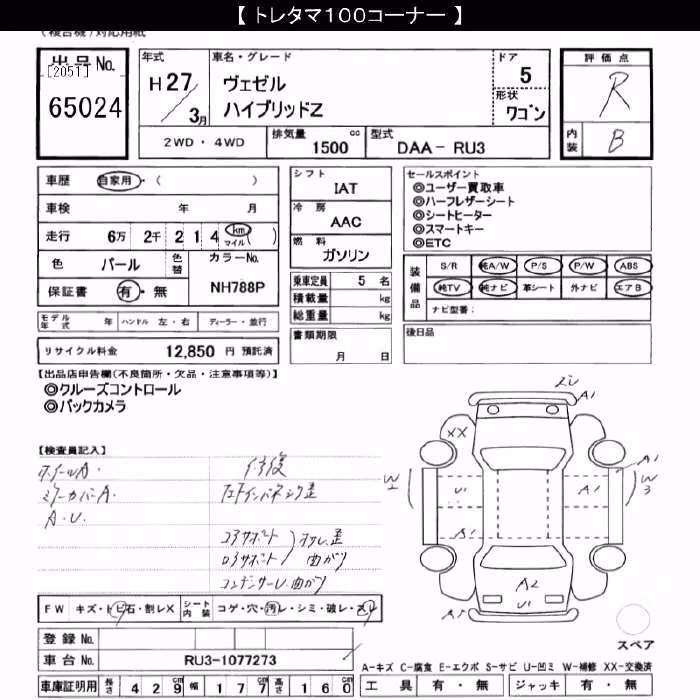 【 トレタマ１００コーナー 】
(複合機)対応用紙
出品No.
[2051]
65024
年式
H 27 / 3月
車名・グレード
ヴェゼル
ハイブリッドZ
ドア
5
形状
ワゴン
評価点
R
内装
B
2WD・4WD
排気量 1500 cc
型式 DAA- RU3
車歴 自家用・( )
車検 年 月
走行 6万 2千 2 1 4 km マイル ( )
色 パール 色替 カラーNo. NH788P
保証書 有・無
モデル年式 年 ハンドル 左・右 ディーラー・並行
リサイクル料金 12,850 円 預託済
シフト
IAT
冷房
AAC
燃料
ガソリン
乗車定員 5 名
積載量 kg
総重量 kg
書類期限
月 日
セールスポイント
◎ユーザー買取車
◎ハーフレザーシート
◎シートヒーター
◎スマートキー
◎ETC
装備品 S/R 純A/W P/S P/W ABS
純TV 純ナビ 革シート 外ナビ エアB
ナビ型番：
後日品
【出品店申告欄(不良箇所・欠品・注意事項等)】
◎クルーズコントロール
◎バックカメラ
【検査員記入】
ホイールA.
ミラーカバーA.
A.U.
修復
コアサポート
ロアサポート
コンデンサー 曲がり
曲がり
XX
A1
A1
W3
U1
A1
A1
A2
U1
FW キズ・トビ石・割レX シート内装 コゲ・穴・汚レ・シミ・破レ・スレ
登録No.
車台No. RU3-1077273
車庫証明用 長さ 429cm 幅 177cm 高さ 160cm
スペア
A-キズ C-腐食 E-エクボ S-サビ U-凹ミ W-補修 XX-交換済
工具 有・無 ジャッキ 有・無